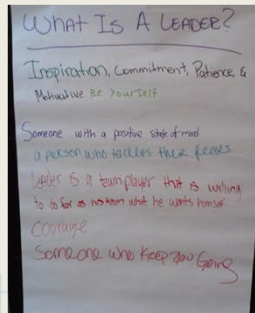 WHAT IS A LEADER?
Inspiration, Commitment, Patience, &
Motivative Be Yourself
Someone with a positive state of mind
a person who tackles their fears
leader is a team player that is willing
to do for his team what he wants himself
Courage
Someone who keep you Going